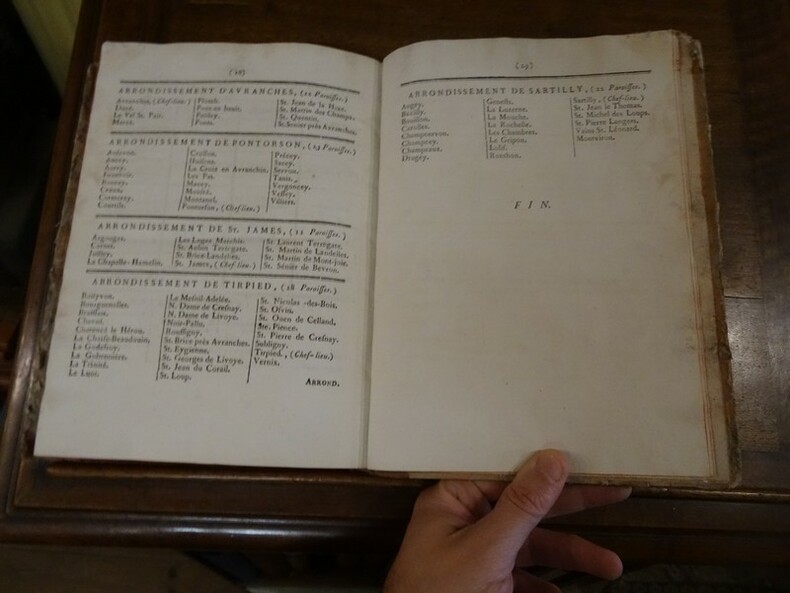 ARRONDISSEMENT D'AVRANCHES, (12 Paroisses.)
Avranches, (Chef-lieu.)
Le Val St. Pair.
Plomb.
Ponts.
St. Jean de la Haize.
St. Martin des Champs.
St. Quentin.
St. Senier près Avranches.
ARRONDISSEMENT DE PONTORSON, (23 Paroisses.)
Huisnes.
La Croix en Avranchin.
Les Pas.
Macey.
Moidré.
Montanel.
Pontorson, (Chef-lieu.)
Précey.
Sacey.
Servon.
Tanis.
Vergoncey.
Vessey.
Villiers.
ARRONDISSEMENT DE St. JAMES, (12 Paroisses.)
Argouges.
Carnet.
La Chapelle-Hamelin.
Les Loges Marchis.
St. Aubin Terregate.
St. Brice-Landelles.
St. James, (Chef-lieu.)
St. Laurent Terregate.
St. Martin de Landelles.
St. Martin de Mont-joie.
St. Sénier de Bevron.
ARRONDISSEMENT DE TIRPIED, (28 Paroisses.)
Boisyvon.
Bouguenolles.
Braffais.
Chavoi.
La Chaise-Beaudouin.
La Godefroy.
La Gohannière.
La Trinité.
Le Luot.
Le Mesnil-Adelée.
N. Dame de Cresnay.
N. Dame de Livoye.
Noir-Palu.
Rouffigny.
St. Brice près Avranches.
St. Eygienne.
St. Georges de Livoye.
St. Jean du Corail.
St. Loup.
St. Nicolas-des-Bois.
St. Ofvin.
St. Ouen de Celland.
Ste. Pience.
St. Pierre de Cresnay.
Subligny.
Tirpied, (Chef-lieu.)
Vernix.
ARROND.
(29)
ARRONDISSEMENT DE SARTILLY, (22 Paroisses.)
Angey.
Bacilly.
Bouillon.
Carolles.
Champcervon.
Champcey.
Dragey.
Genests.
La Lucerne.
La Mouche.
La Rochelle.
Les Chambres.
Le Grippon.
Lolif.
Ronthon.
Sartilly, (Chef-lieu.)
St. Jean le Thomas.
St. Michel des Loups.
St. Pierre Langers.
Vains St. Léonard.
Montviron.
FIN.